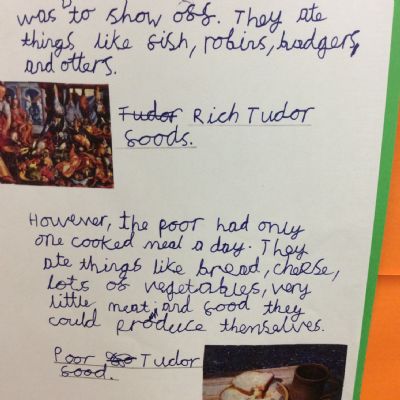 was to show off. They ate
things like fish, robins, badgers,
and otters.
Tudor Rich Tudor
foods.
However, the poor had only
one cooked meal a day. They
ate things like bread, cheese,
lots of vegetables, very
little meat, and food they
could produce themselves.
Poor Tudor
food.